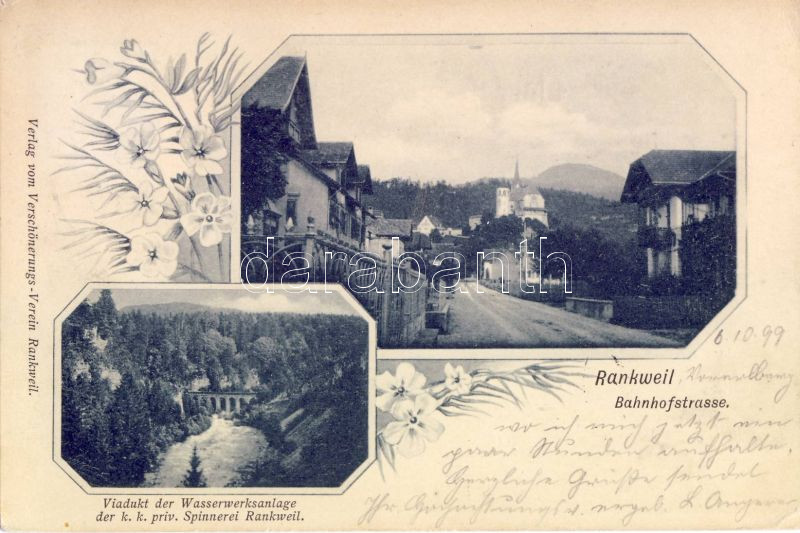 Verlag vom Verschönerungs-Verein Rankweil.
darabanth
6.10.99
Rankweil, Vorarlberg
Bahnhofstrasse.
wo ich mich jetzt ein
paar Stunden aufhalte.
Herzliche Grüße sendet
Ihr Hochachtungsv. ergeb. L.
Viadukt der Wasserwerksanlage
der k. k. priv. Spinnerei Rankweil.